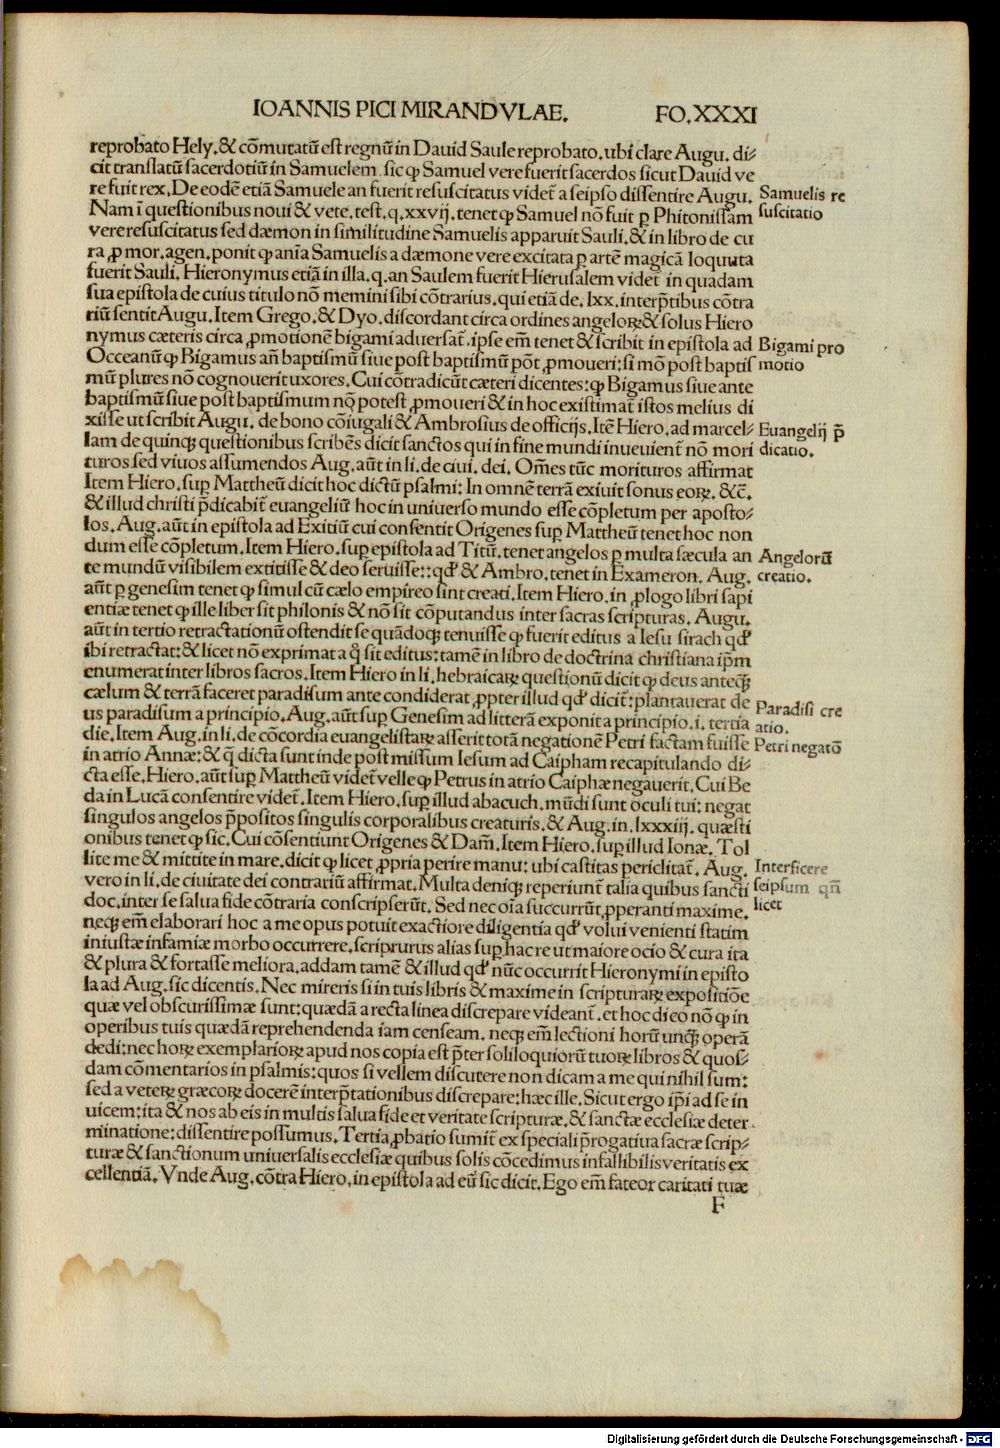 IOANNIS PICI MIRANDVLAE. FO. XXXI
reprobato Hely. & cõmutatũ est regnũ in Dauid Saule reprobato. ubi clare Augu. di⸗
cit translatũ sacerdotiũ in Samuelem. sic ꝙ Samuel vere fuerit sacerdos sicut Dauid ve
re fuit rex. De eodẽ etiã Samuele an fuerit resuscitatus videt᷑ a seipso dissentire Augu.
Nam ĩ questionibus noui & vete. test. q. xxvij. tenet ꝙ Samuel nõ fuit ꝑ Phitonissam
vere resuscitatus sed dæmon in similitudine Samuelis apparuit Sauli. & in libro de cu
ra ꝓ mor. agen. ponit ꝙ anĩa Samuelis a dæmone vere excitata ꝑ artẽ magicã loquuta
fuerit Sauli. Hieronymus etiã in illa. q. an Saulem fuerit Hierusalem videt᷑ in quadam
sua epistola de cuius titulo nõ memini sibi cõtrarius. qui etiã de. lxx. interp̃tibus cõtra
riũ sentit Augu. Item Grego. & Dyo. discordant circa ordines angeloꝝ & solus Hiero
nymus cæteris circa ꝓmotionẽ bigami aduersat᷑. ipse em̃ tenet & scribit in epistola ad
Occeanũ ꝙ Bigamus añ baptismũ siue post baptismũ põt ꝓmoueri: si mõ post baptis
mũ plures nõ cognouerit uxores. Cui cõtradicũt cæteri dicentes: ꝙ Bigamus siue ante
baptismũ siue post baptismum nõ potest ꝓmoueri & in hoc existimat᷑ istos melius di
xisse ut scribit Augu. de bono cõiugali & Ambrosius de officijs. Itẽ Hiero. ad marcel⸗
lam de quinqꝫ questionibus scribẽs dicit sanctos qui in fine mundi inueuient᷑ nõ mori
turos sed viuos assumendos Aug. aũt in li. de ciui. dei. Om̃es tũc morituros affirmat
Item Hiero. suꝑ Mattheũ dicit hoc dictũ psalmi: In omnẽ terrã exiuit sonus eoꝝ. &c̃.
& illud christi p̃dicabit᷑ euangeliũ hoc in uniuerso mundo esse cõpletum per aposto⸗
los. Aug. aũt in epistola ad Exitiũ cui consentit Origenes suꝑ Mattheũ tenet hoc non
dum esse cõpletum. Item Hiero. suꝑ epistola ad Titũ. tenet angelos ꝑ multa sæcula an
te mundũ visibilem extitisse & deo seruisse:: qď & Ambro. tenet in Exameron. Aug.
aũt ꝑ genesim tenet ꝙ simul cũ cælo empireo sint creati. Item Hiero. in ꝓlogo libri sapi
entiæ tenet ꝙ ille liber sit philonis & nõ sit cõputandus inter sacras scripturas. Augu.
aũt in tertio retractationũ ostendit se quãdoqꝫ tenuisse ꝙ fuerit editus a Iesu sirach qď
ibi retractat: & licet nõ exprimat a q̃ sit editus: tamẽ in libro de doctrina christiana ip̃m
enumerat inter libros sacros. Item Hiero in li. hebraicaꝝ questionũ dicit ꝙ deus anteqꝫ
cælum & terrã faceret paradisum ante condiderat ꝓpter illud qď dicit᷑: plantauerat de
us paradisum a principio. Aug. aũt suꝑ Genesim ad litterã exponit a principio. i. tertia
die. Item Aug. in li. de cõcordia euangelistaꝝ asserit totã negationẽ Petri factam fuisse
in atrio Annæ: & q̃ dicta sunt inde post missum Iesum ad Caipham recapitulando di⸗
cta esse. Hiero. aũt suꝑ Mattheũ videt᷑ velle ꝙ Petrus in atrio Caiphæ negauerit. Cui Be
da in Lucã consentire videt᷑. Item Hiero. suꝑ illud abacuch. mũdi sunt oculi tui: negat
singulos angelos p̃positos singulis corporalibus creaturis. & Aug. in. lxxxiij. quæsti
onibus tenet ꝙ sic. Cui cõsentiunt Origenes & Dam̃. Item Hiero. suꝑ illud Ionæ. Tol
lite me & mittite in mare. dicit ꝙ licet ꝓpria perire manu: ubi castitas periclitat᷑. Aug.
vero in li. de ciuitate dei contrariũ affirmat. Multa deniqꝫ reperiunt᷑ talia quibus sancti
doc. inter se salua fide cõtraria conscripserũt. Sed nec oĩa succurrũt ꝓperanti maxime.
neqꝫ em̃ elaborari hoc a me opus potuit exactiore diligentia qď volui venienti statim
iniustæ infamiæ morbo occurrere. scripturus alias suꝑ hac re ut maiore ocio & cura ita
& plura & fortasse meliora. addam tamẽ & illud qď nũc occurrit Hieronymi in episto
la ad Aug. sic dicentis. Nec mireris si in tuis libris & maxime in scripturaꝝ expositiõe
quæ vel obscurissimæ sunt: quædã a recta linea discrepare videant᷑. et hoc di eo nõ ꝙ in
operibus tuis quædã reprehendenda iam censeam. neqꝫ em̃ lectioni horũ unqꝫ operã
dedi: nec hoꝝ exemplarioꝝ apud nos copia est p̃ter soliloquiorũ tuoꝝ libros & quos⸗
dam cõmentarios in psalmis: quos si vellem discutere non dicam a me qui nihil sum:
sed a veteꝝ græcoꝝ docerẽ interp̃tationibus discrepare: hæc ille. Sicut ergo ip̃i ad se in
uicem: ita & nos ab eis in multis salua fide et veritate scripturæ. & sanctæ ecclesiæ deter
minatione: dissentire possumus. Tertia ꝓbatio sumit᷑ ex speciali p̃rogatiua sacræ scrip⸗
turæ & sanctionum uniuersalis ecclesiæ quibus solis cõcedimus infallibilis veritatis ex
cellentiã. Vnde Aug. cõtra Hiero. in epistola ad eũ sic dicit. Ego em̃ fateor caritati tuæ
F
Samuelis re
suscitatio
Bigami pro
motio
Euangelij p̃
dicatio.
Angelorũ
creatio.
Paradisi cre
atio.
Petri negatõ
Interficere
seipsum qñ
licet
Digitalisierung gefördert durch die Deutsche Forschungsgemeinschaft - DFG